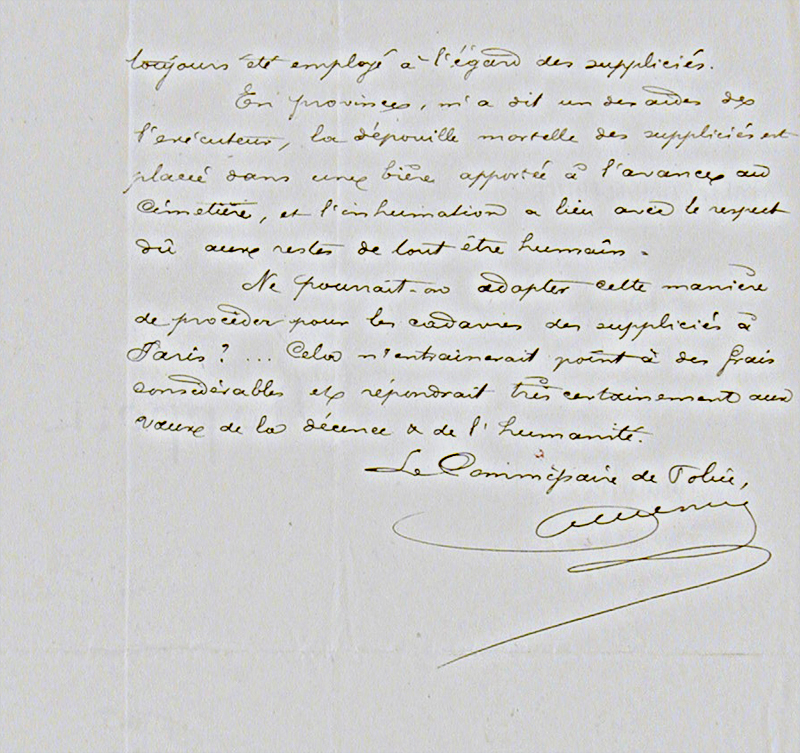 toujours été employé à l'égard des suppliciés.
En province, m'a dit un des aides de
l'exécuteur, la dépouille mortelle des suppliciés est
placée dans une bière apportée à l'avance au
Cimetière, et l'inhumation a lieu avec le respect
dû aux restes de tout être humain.
Ne pourrait-on adopter cette manière
de procéder pour les cadavres des suppliciés à
Paris ? ... Cela n'entrainerait point à des frais
considérables et répondrait très certainement aux
vœux de la décence & de l'humanité.
Le Commissaire de Police,